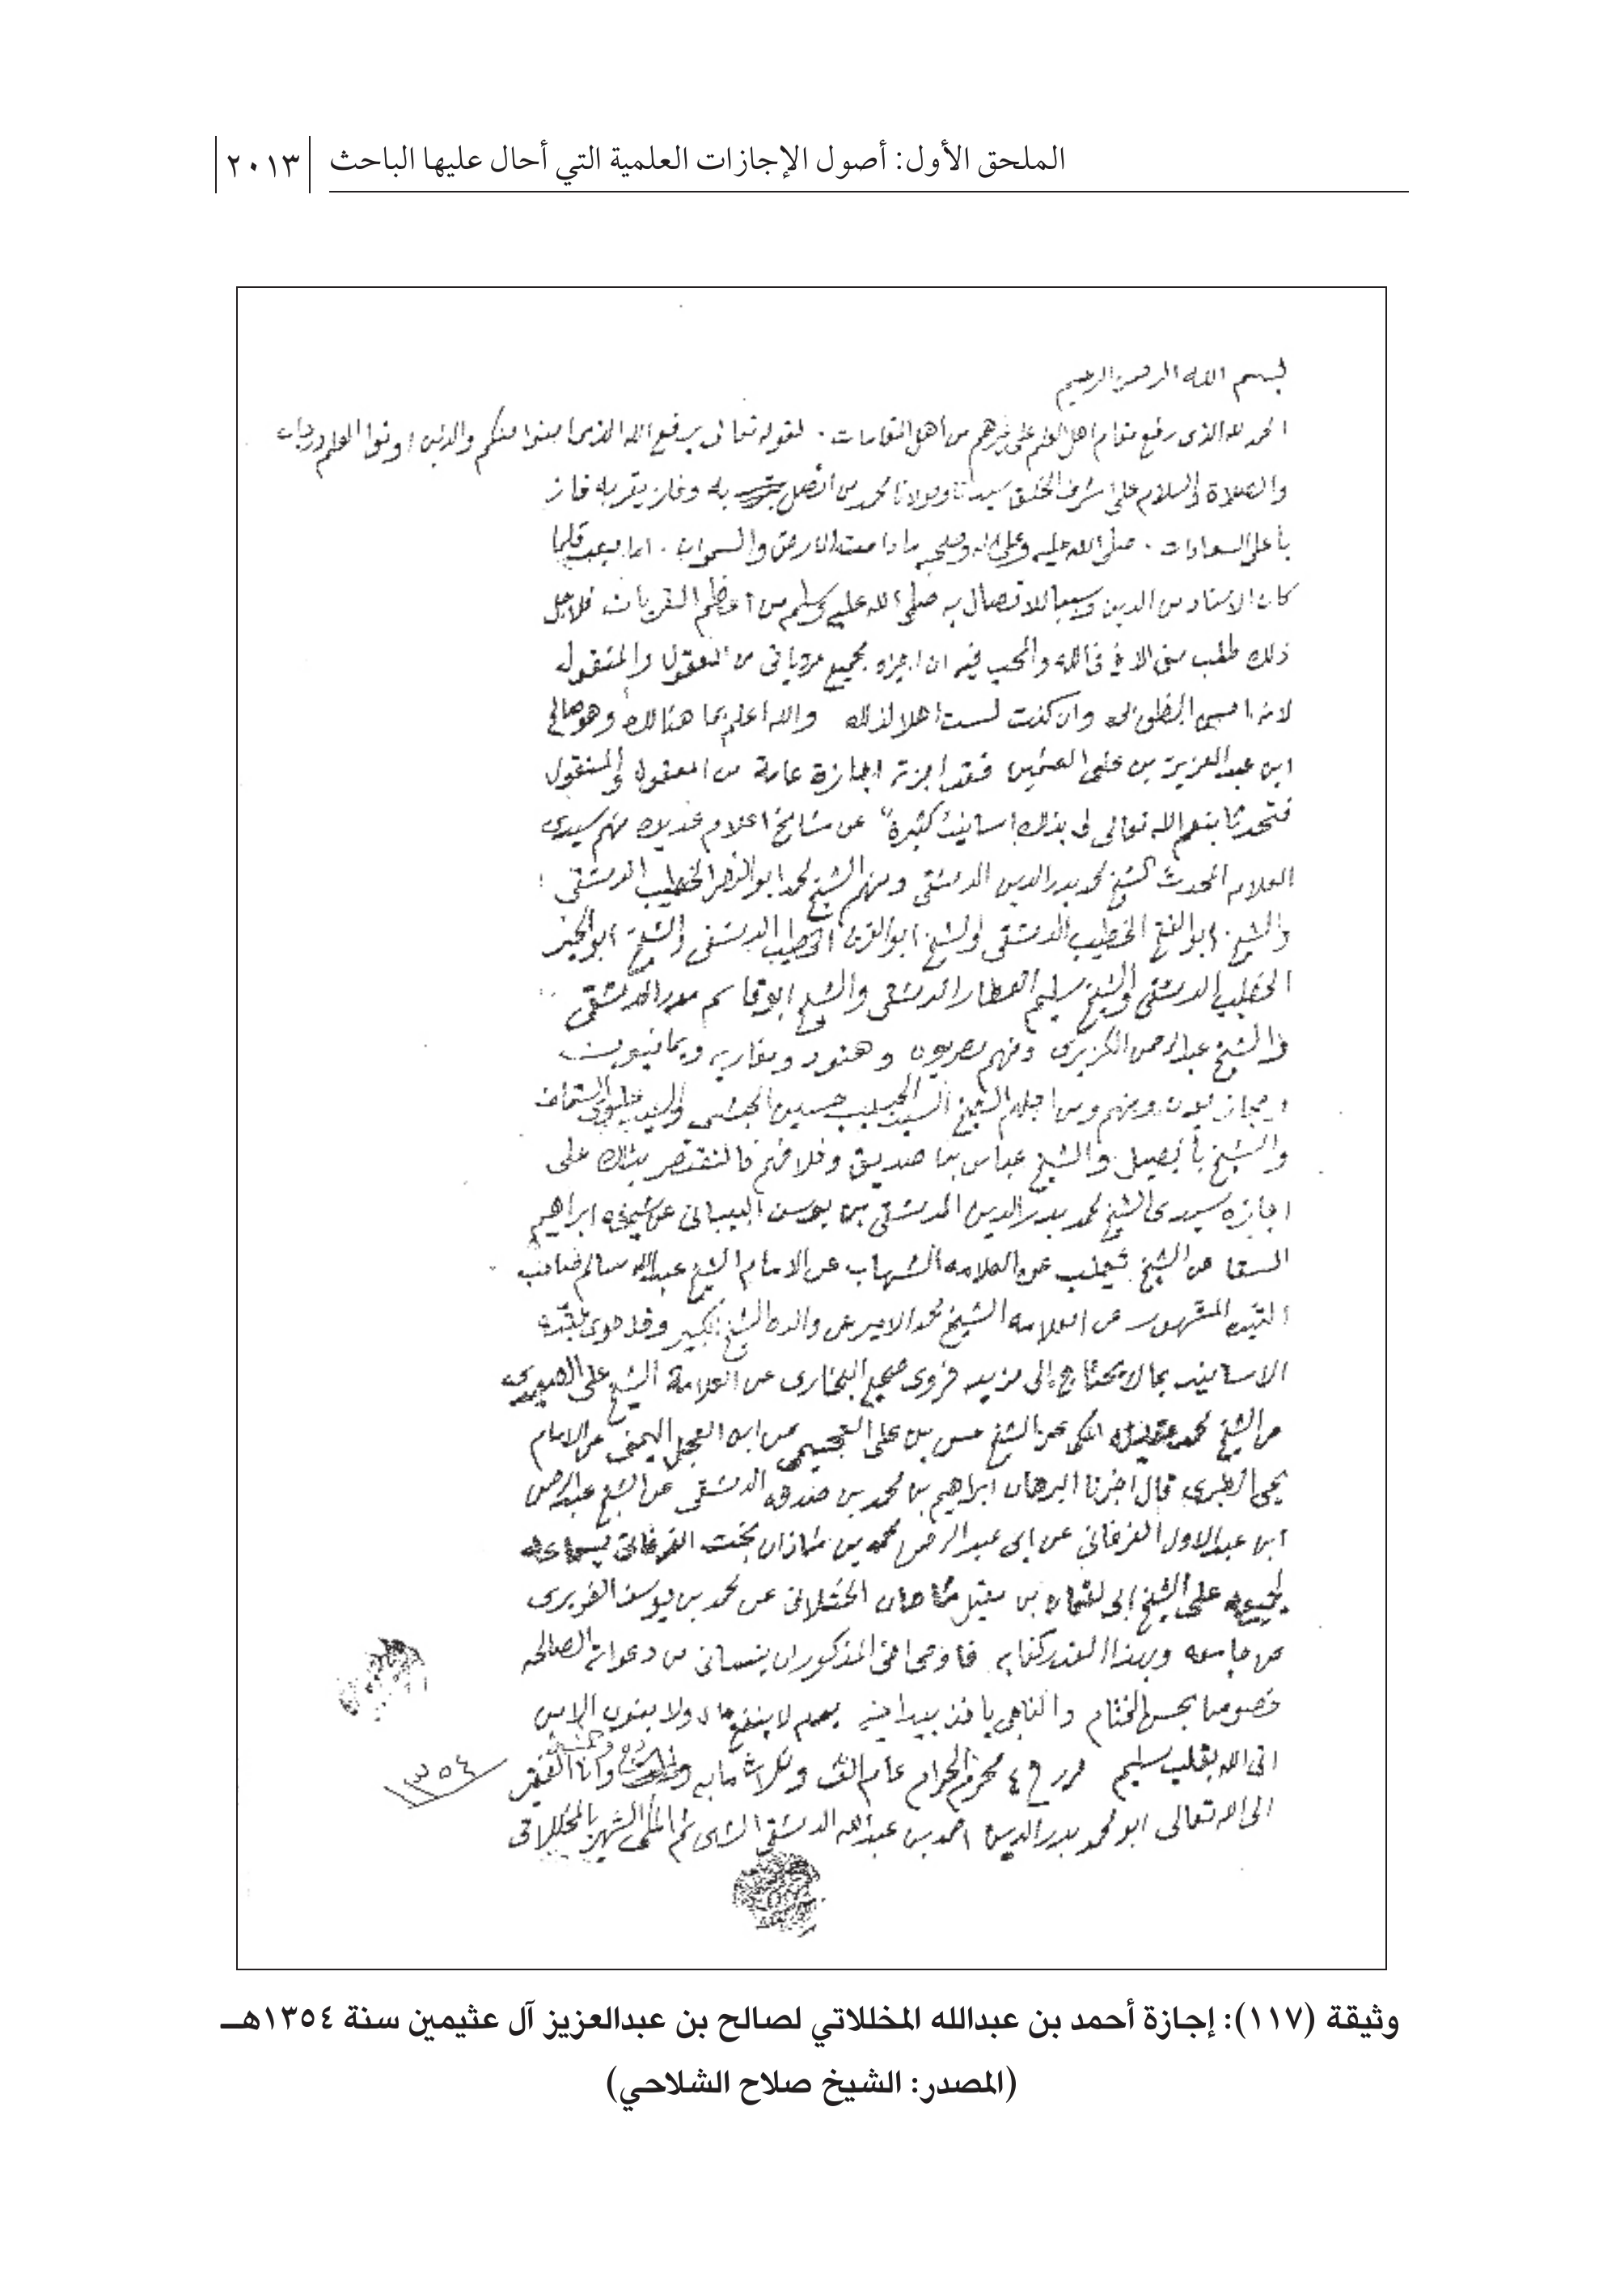 الملحق الأول: أصول الإجازات العلمية التي أحال عليها الباحث ٢٠١٣
بسم الله الرحمن الرحيم
الحمد لله الذى رفع مقام اهل العلم على غيرهم من أهل المقامات . لقوله تعالى يرفع الله الذى امنوا منكم والذين اوتوا العلم درجات
والصلاة والسلام على اشرف الخلق سيدنا ومولانا محمد من اتصل به وفاز بقربه فاز
بأعلى السعادات . صلى الله عليه وعلى اله وصحبه ما دامت الارض والسموات . اما بعد فلما
كان الاسناد من الدين وسببا للاتصال به صلى الله عليه وسلم من أعظم القربات فلاجل
ذلك طلب منى الاخ فى الله والمحب فيه ان اجيزه بجميع مروياتى من المعقول والمنقول
لانه احسن الظن بى وان كنت لست اهلا لذلك والله اعلم بما هنالك وهو صالح
ابن عبد العزيز بن على العثيمين فقد اجزته اجازة عامة من المعقول والمنقول
فتحدثا بنعم الله تعالى لى بذلك اسانيد كثيرة عن مشايخ اعلام عديده منهم سيدى
العلامه المحدث الشيخ محمد بدر الدين الدمشقى ومنهم الشيخ محمد ابو النصر الخطيب الدمشقى
والشيخ ابو الفتح الخطيب الدمشقى والشيخ ابو الفرج الخطيب الدمشقى والشيخ ابو الخير
الخطيب الدمشقى والشيخ سليم العطار الدمشقى والشيخ ابو قاسم الدمشقى
والشيخ عبد الرحمن الكزبرى ومنهم مصريون وهنود ومغاربه ويمانيون
وحجازيون ومنهم ومن اجلهم الشيخ السيد الحبيب حسين الحبشى والسيد علوى السقاف
والشيخ بأبصيل والشيخ عباس بن صديق وخلافهم فالنقتصر بذلك على
اجازة سيدى الشيخ محمد بدر الدين الدمشقى بن يوسف البيبانى عن شيخه ابراهيم
السقا عن الشيخ ثعيلب عن العلامه الشهاب عن الامام الشيخ عبد الله سالم صاحب
الثبت المشهور عن العلامه الشيخ محمد الامير عن والده الشيخ الكبير وقد حوى ثبته
الاسانيد بما لا يحتاج الى مزيد فروى صحيح البخارى عن العلامة الشيخ على الصعيدى
عن الشيخ محمد عقيله المكى عن الشيخ حسن بن على العجيمى عن ابن العجل اليمنى عن الامام
يحيى الطبرى قال اخبرنا البرهان ابراهيم بن محمد بن صدقه الدمشقى عن الشيخ عبد الرحمن
ابن عبد الاول الفرغانى عن ابى عبد الرحمن محمد بن شاذان بخت الفرغانى بسماعه
لجميعه على الشيخ ابى لقمان بن مقبل شاهان الختلانى عن محمد بن يوسف الفربرى
عن جامعه وبهذا القدر كفايه فاوصى اخى المذكور ان ينسانى من دعواته الصالحه
خصوصا بحسن الختام والله يأخذ بيدا يوم لا ينفع مال ولا بنون الا من
اتى الله بقلب سليم حرر فى ٤ محرم الحرام عام الف وثلاث مايه وانا الفقير
١٣٥٤
الى الله تعالى ابو محمد بدر الدين احمد بن عبد الله الدمشقى الشامى ثم المكى الشهير بالمخللاتى
وثيقة (١١٧): إجازة أحمد بن عبدالله المخللاتي لصالح بن عبدالعزيز آل عثيمين سنة ١٣٥٤هـ
(المصدر: الشيخ صلاح الشلاحي)